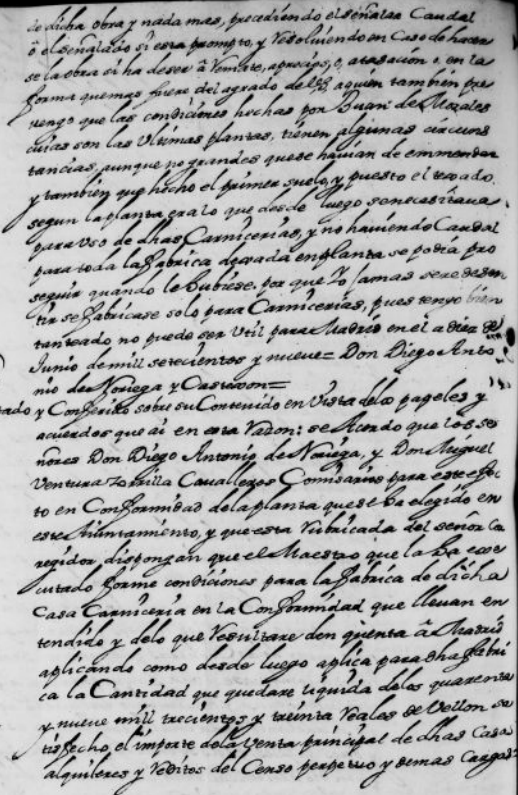 de dicha obra y nada mas, precediendo el señalar Caudal
ò el señalado si esta prompto, y Resolviendo en Caso de hacer
se la obra si ha de ser â Remate, aprecios, o, atasacion o en la
forma que mas fuere del agrado de aquien tambien pre
vengo que las condiciones hechas por Juan de Morales
cuias son las Ultimas plantas, tienen algunas circuns
tancias, aunque no grandes que se havian de emmendar
y tambien que hecho el primer suelo, y puesto el texado
segun la planta era lo que desde luego se necesitava
para uso de dhas Carnicerias, y no haviendo Caudal
para toda la fabrica deqada en planta se podia pro
seguir quando le hubiese. por que Yo jamas sere de sen
tir se fabricase solo para Carnicerias, pues tengo bien
tanteado no puede ser Util para Madrid en el a diez de
Junio de mill setecientos y nueve = Don Diego Anto
nio de Noriega y Castexon =
tado y Conferido sobre su Contenido en Vista delos papeles y
acuerdos que ai en esta Razon: se Acordo que los se
ñores Don Diego Antonio de Noriega, y Don Miguel
Ventura Zorrilla Cavalleros Comisarios para este efec
to en Conformidad dela planta que se ha elegido en
este Aiuntamiento, y que esta Rubricada del señor Co
rregidor, dispongan que el Maestro que la ha exe
cutado forme condiciones para la fabrica de dicha
Casa Carniceria en la Conformidad que llevan en
tendido y delo que Resultare den quenta â Madrid
aplicando como desde luego aplica para dha fabri
ca la Cantidad que quedare liquida delos quarenta
y nueve mill trecientos y treinta Reales de Vellon sa
tisfecho el importe dela Venta principal de dhas Casas
alquileres y Reditos del Censo perpetuo y demas Cargas=